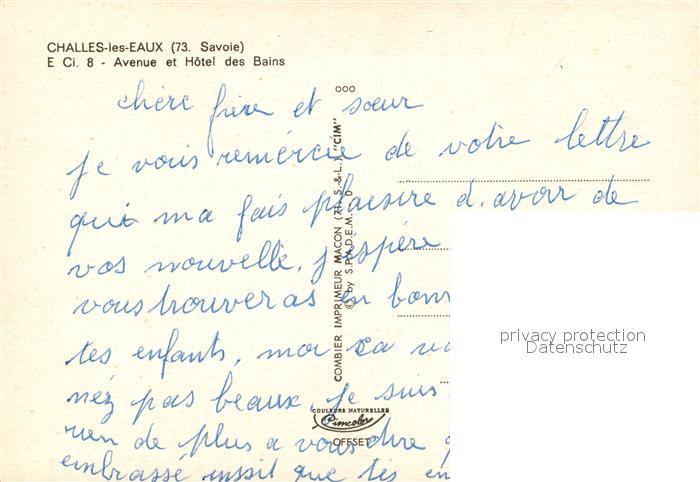 CHALLES-les-EAUX (73. Savoie)
E Ci. 8 - Avenue et Hôtel des Bains
chère frère et sœur
je vous remércie de votre lettre
qui ma fais plaisire d'avoir de
vos nouvelle, j'éspère
vous trouveras en bonn
tes enfants, moi ça va
néz pas beaux, je suis
rien de plus a vous dire
embrassé inssit que tes en
COMBIER IMPRIMEUR MACON (71. S.-&-L.) "CIM"
© by S.P.A.D.E.M.
COULEURS NATURELLES
Cimcolor
OFFSET
privacy protection
Datenschutz